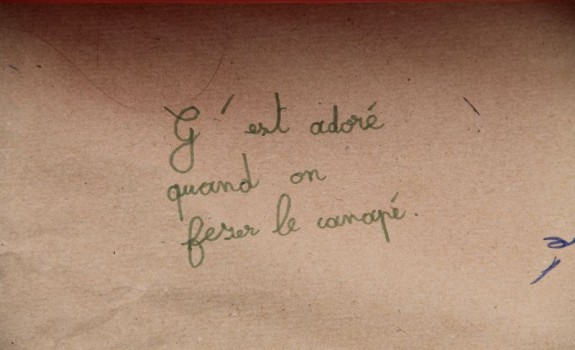 G'est adoré
quand on
feser le canapé.